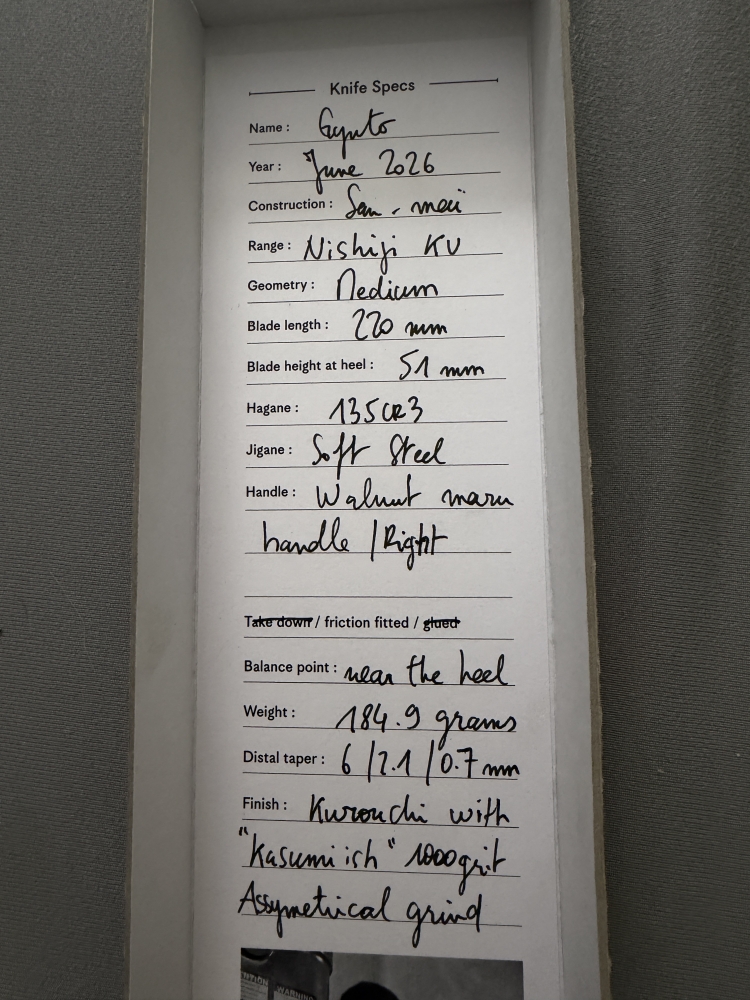 Knife Specs
Name : Gyuto
Year : June 2026
Construction : San - maï
Range : Nishiji KU
Geometry : Medium
Blade length : 220 mm
Blade height at heel : 51 mm
Hagane : 135CR3
Jigane : Soft Steel
Handle : Walnut maru
handle / Right
Take down / friction fitted / glued
Balance point : near the heel
Weight : 184.9 grams
Distal taper : 6 / 2.1 / 0.7 mm
Finish : Kurouchi with
"Kasumi ish" 1000 grit
Assymetrical grind